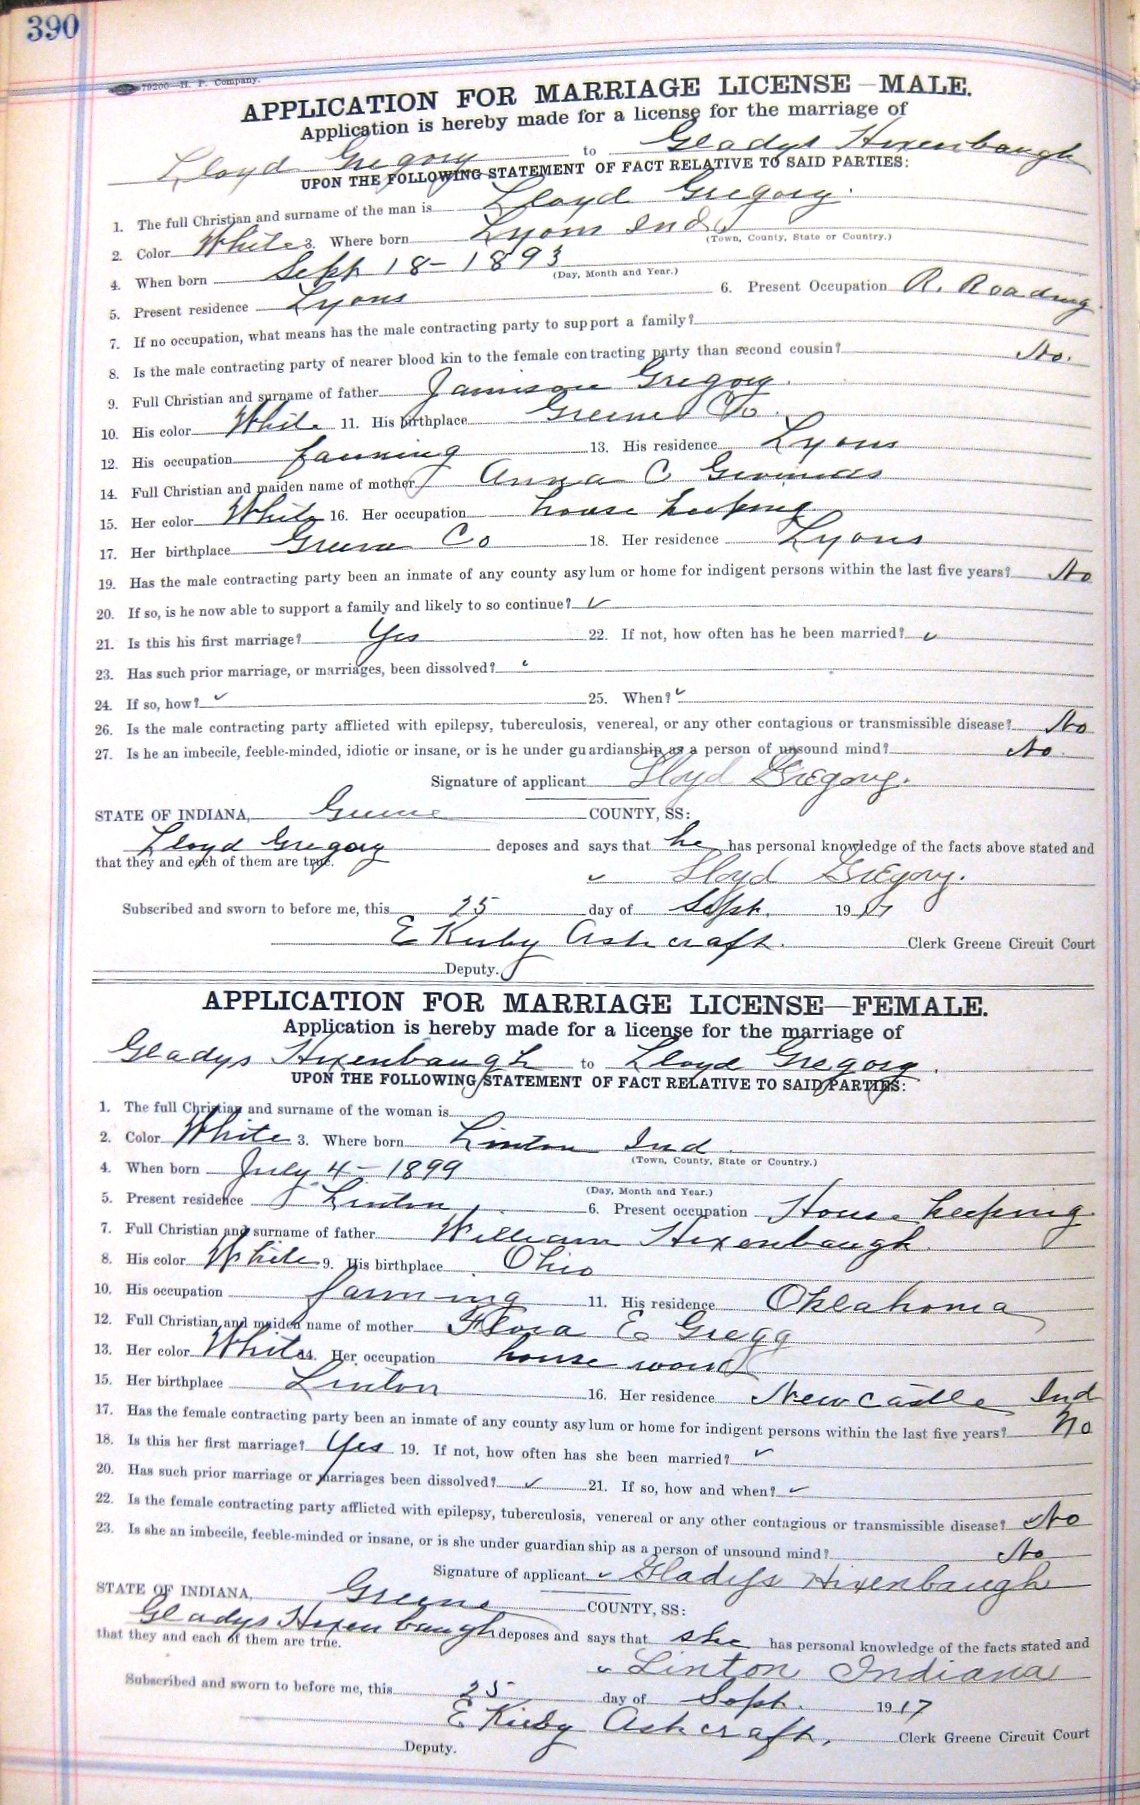 390
79200—H. P. Company.
APPLICATION FOR MARRIAGE LICENSE—MALE.
Application is hereby made for a license for the marriage of
Lloyd Gregory to Gladys Hixenbaugh
UPON THE FOLLOWING STATEMENT OF FACT RELATIVE TO SAID PARTIES:
1. The full Christian and surname of the man is Lloyd Gregory.
2. Color White 3. Where born Lyons Ind
(Town, County, State or Country.)
4. When born Sept 18-1893
(Day, Month and Year.)
5. Present residence Lyons 6. Present Occupation R. Roading
7. If no occupation, what means has the male contracting party to support a family?
8. Is the male contracting party of nearer blood kin to the female contracting party than second cousin? No.
9. Full Christian and surname of father Jamison Gregory.
10. His color White 11. His birthplace Greene Co.
12. His occupation farming 13. His residence Lyons
14. Full Christian and maiden name of mother Anna C
15. Her color White 16. Her occupation house keeping
17. Her birthplace Greene Co 18. Her residence Lyons
19. Has the male contracting party been an inmate of any county asylum or home for indigent persons within the last five years? No
20. If so, is he now able to support a family and likely to so continue? ✓
21. Is this his first marriage? Yes 22. If not, how often has he been married? ✓
23. Has such prior marriage, or marriages, been dissolved? ✓
24. If so, how? ✓ 25. When? ✓
26. Is the male contracting party afflicted with epilepsy, tuberculosis, venereal, or any other contagious or transmissible disease? No
27. Is he an imbecile, feeble-minded, idiotic or insane, or is he under guardianship as a person of unsound mind? No.
Signature of applicant Lloyd Gregory.
STATE OF INDIANA, Greene COUNTY, SS:
Lloyd Gregory deposes and says that he has personal knowledge of the facts above stated and
that they and each of them are true.
✓ Lloyd Gregory.
Subscribed and sworn to before me, this 25 day of Sept. 1917
E Kirby Ashcraft. Clerk Greene Circuit Court
Deputy.
APPLICATION FOR MARRIAGE LICENSE—FEMALE.
Application is hereby made for a license for the marriage of
Gladys Hixenbaugh to Lloyd Gregory.
UPON THE FOLLOWING STATEMENT OF FACT RELATIVE TO SAID PARTIES:
1. The full Christian and surname of the woman is
2. Color White 3. Where born Linton Ind
(Town, County, State or Country.)
4. When born July 4-1899
(Day, Month and Year.)
5. Present residence Linton 6. Present occupation House keeping
7. Full Christian and surname of father William Hixenbaugh
8. His color White 9. His birthplace Ohio
10. His occupation farming 11. His residence Oklahoma
12. Full Christian and maiden name of mother Flora E Gregg
13. Her color White 14. Her occupation house work
15. Her birthplace Linton 16. Her residence Newcastle Ind
17. Has the female contracting party been an inmate of any county asylum or home for indigent persons within the last five years? No
18. Is this her first marriage? Yes 19. If not, how often has she been married? ✓
20. Has such prior marriage or marriages been dissolved? ✓ 21. If so, how and when? ✓
22. Is the female contracting party afflicted with epilepsy, tuberculosis, venereal or any other contagious or transmissible disease? No
23. Is she an imbecile, feeble-minded or insane, or is she under guardianship as a person of unsound mind? No
Signature of applicant ✓ Gladys Hixenbaugh
STATE OF INDIANA, Greene COUNTY, SS:
Gladys Hixenbaugh deposes and says that she has personal knowledge of the facts stated and
that they and each of them are true.
✓ Linton Indiana
Subscribed and sworn to before me, this 25 day of Sept. 1917
E Kirby Ashcraft. Clerk Greene Circuit Court
Deputy.